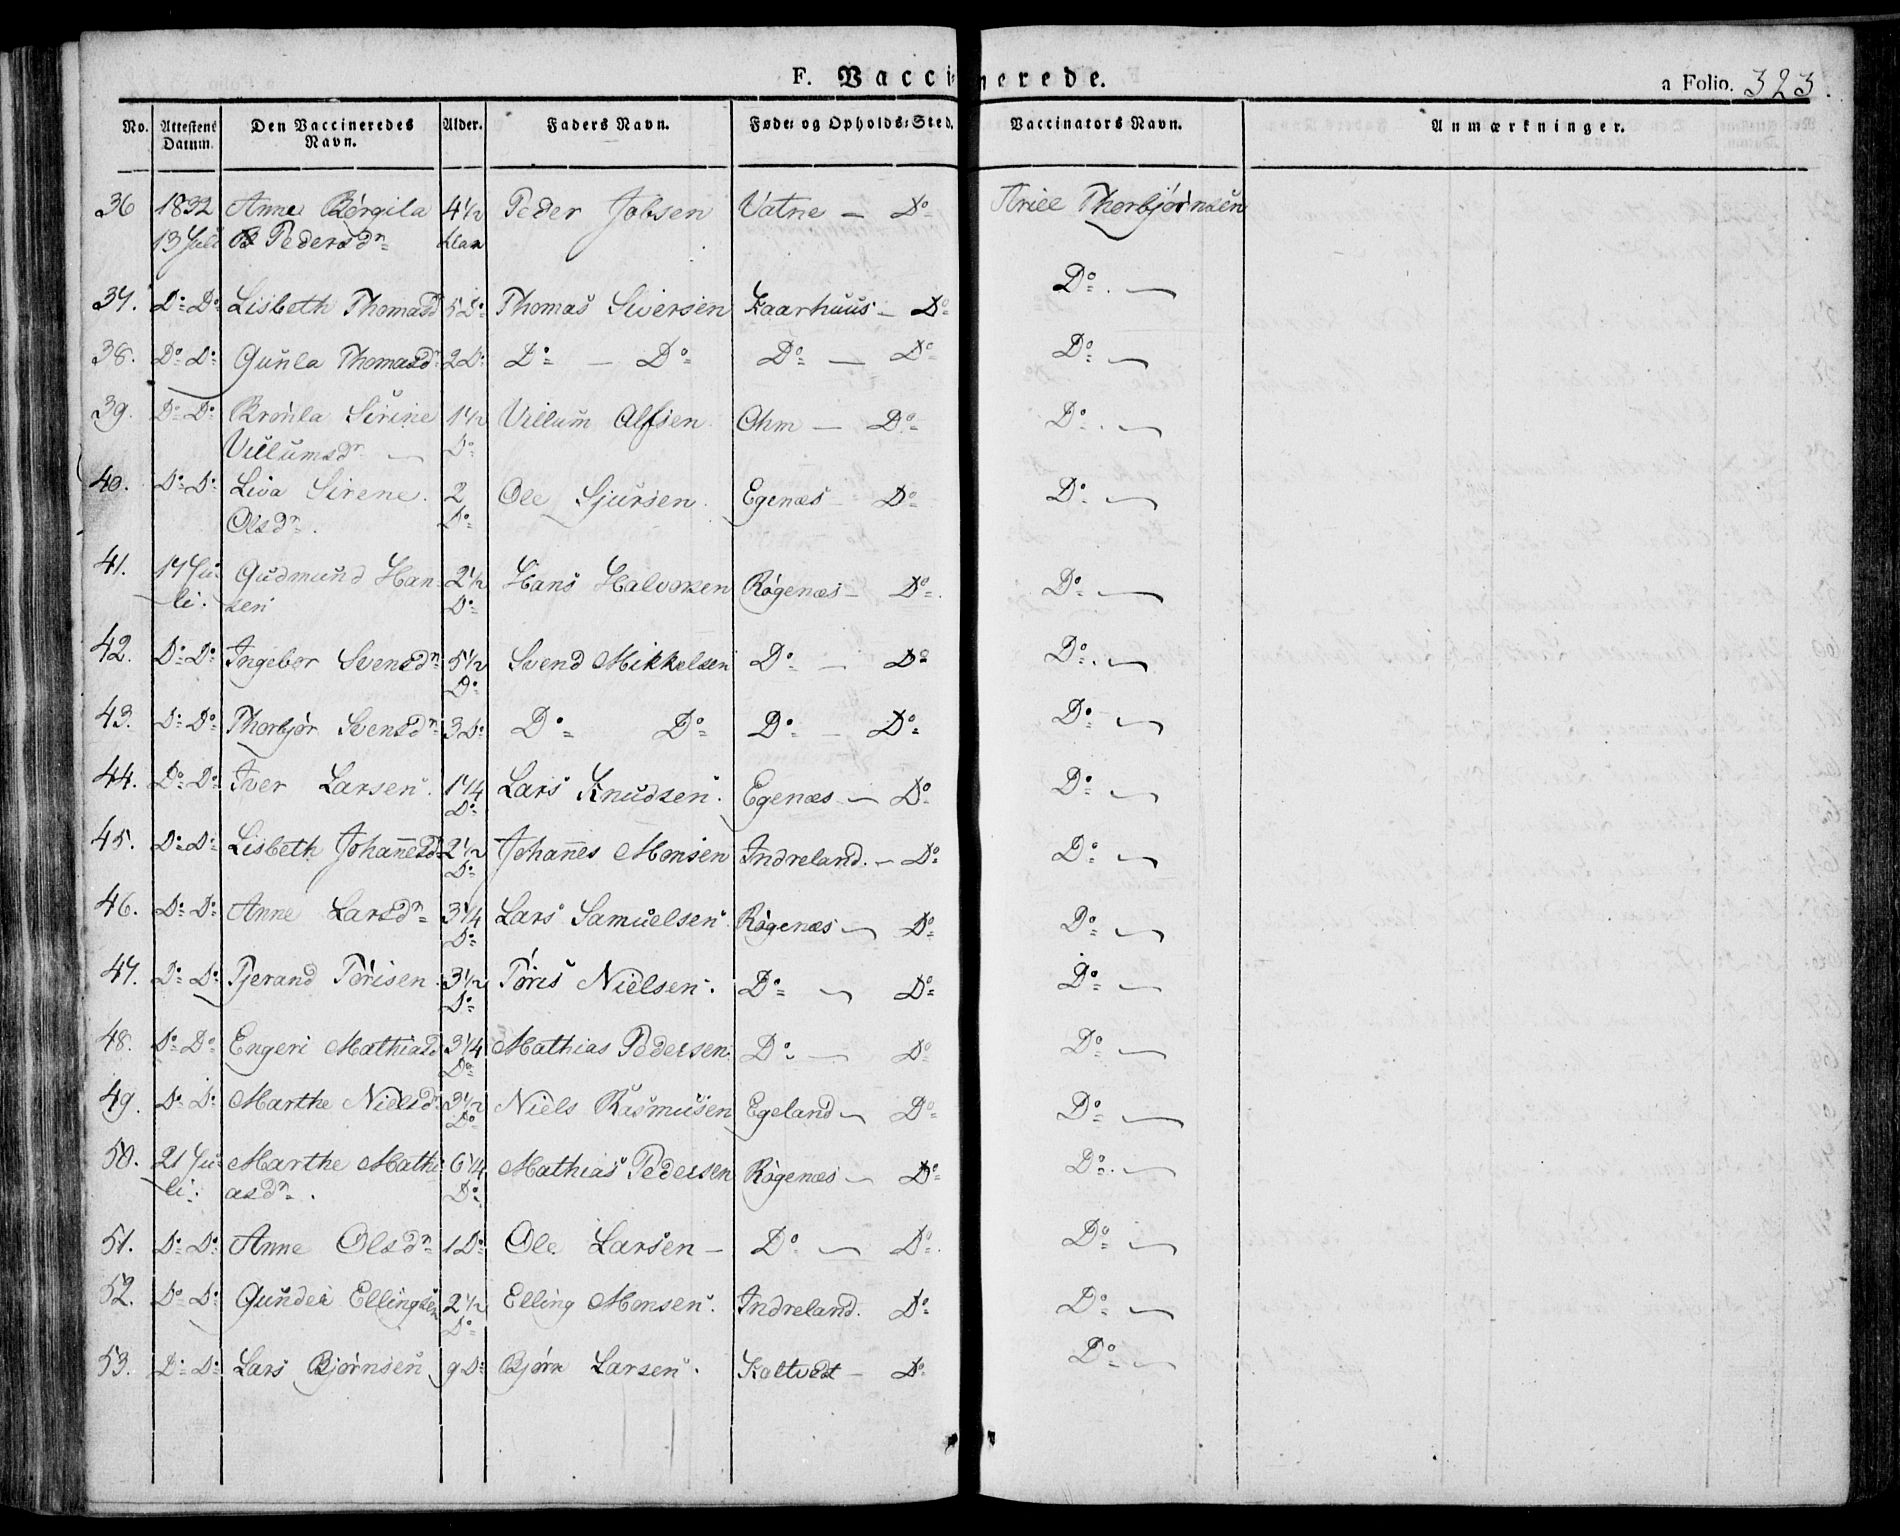 F. Vaccinerede. a Folio. 323.
No. Attestens Datum. Den Vaccineredes Navn. Alder. Faders Navn. Føde- og Opholds-Sted. Vaccinators Navn. Anmærkninger.
36 1832 Anne Børgila 4½ Peder Jobsen Vatne — Do Ariel Thorbjørnsen
13 Juli Pedersdn Aar
37. Do Do Lisbeth Thomasd 5 Do Thomas Siversen Kaarhuus — Do Do —
38. Do Do Gunla Thomasdn 2 Do Do — Do Do — Do Do —
39. Do Do Bronla Sirine 1½ Villum Olfsen Ohm — Do Do —
Villumsdn — Do
40. Do Do Liva Sirene. 2 Ole Sjursen. Egenæs — Do Do —
Olsdn. Do
41. 17 Ju- Gudmund Han 2½ Hans Halvorsen Røgenæs — Do. Do —
li. sen Do
42. Do Do Ingebor Svensdn 5½ Svend Mikkelsen Do — Do Do —
Do
43. Do Do Thorbjør Svensdn 3 Do Do Do Do — Do Do —
44. Do Do Iver Larsen. 1¼ Lars Knudsen. Egenæs — Do Do —
Do
45. Do Do Lisbeth Johannesd 2½ Johannes Monsen Indreland. — Do Do —
Do
46. Do Do Anne Larsdn 3¼ Lars Samuelsen Røgenæs — Do Do —
Do
47. Do Do Tjerand Tørisen. 3½ Tøris Nielsen. Do — Do Do —
Do
48. Do Do Engeri Mathiasd 3¼ Mathias Pedersen Do — Do Do —
Do
49. Do Do Marthe Nielsdn 3½ Niels Rasmusen Egeland — Do Do —
Do
50. 21 Ju- Marthe Mathi- 6¼ Mathias Pedersen Røgenæs — Do Do —
li. asdn. Do
51. Do Do Anne Olsdn 1 Do Ole Larsen — Do — Do. Do —
52. Do Do Gunder Ellingsen 2½ Elling Monsen. Indreland. Do Do —
Do
53. Do Do Lars Bjørnsen 9 Do Bjørn Larsen. Koltvedt — Do Do —